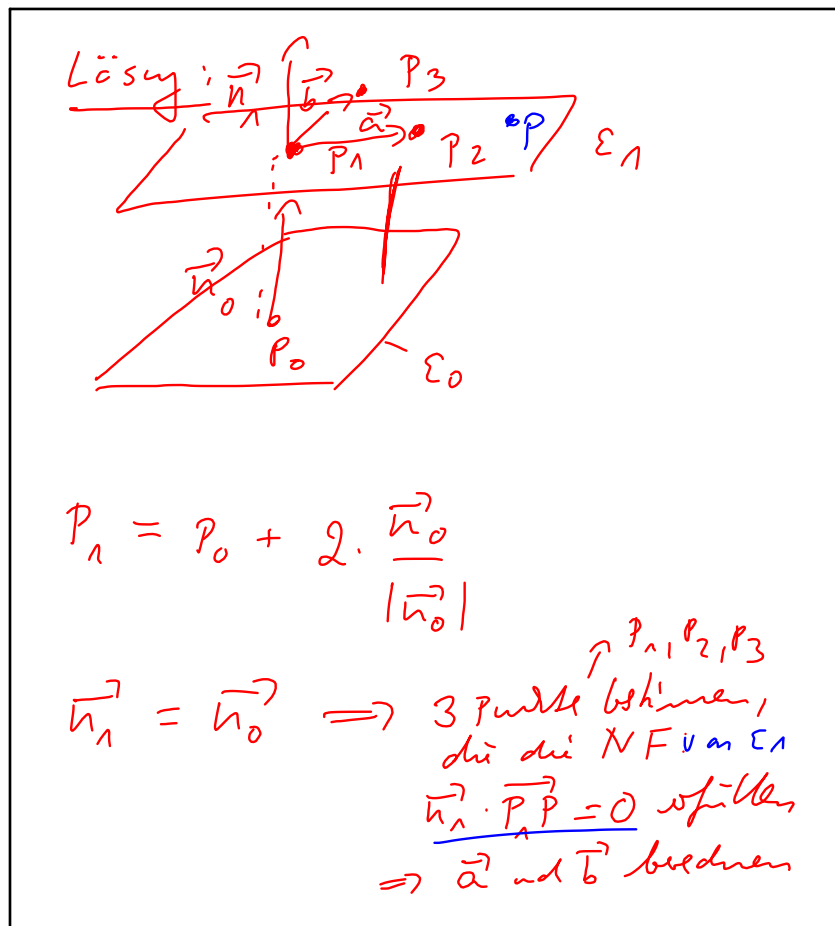 Lösung:
n₁→ b→ P₃
a→ P
P₁ P₂ ε₁
n₀→
P₀ ε₀
P₁ = P₀ + 2 · n₀→ / |n₀→|
P₁, P₂, P₃
n₁→ = n₀→ ⟹ 3 Punkte bestimmen,
die die NF von ε₁
n₁→ · P₁P→ = 0 erfüllen
⟹ a→ und b→ berechnen